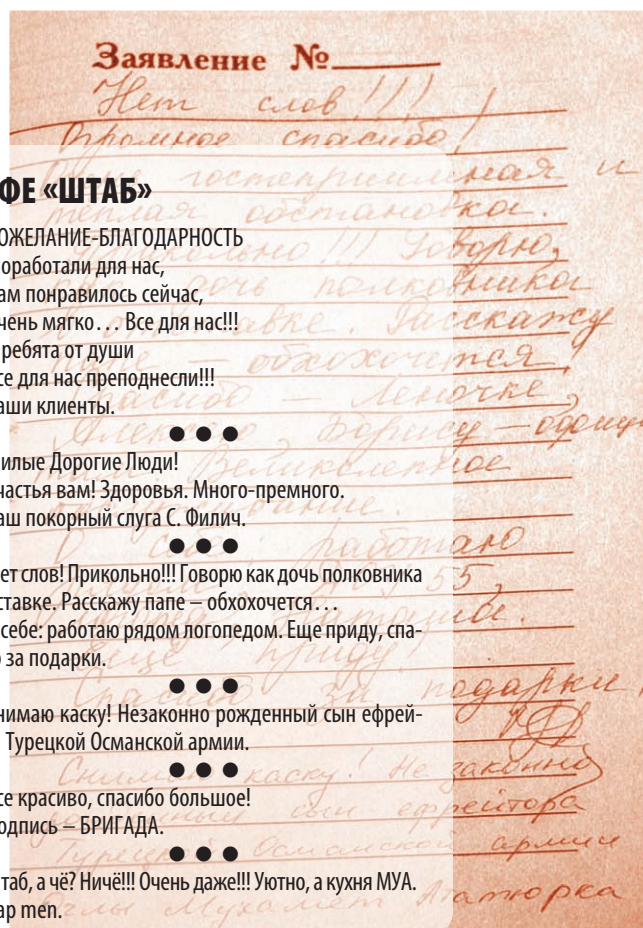 Заявление №
Нет слов!!!
Огромное спасибо!
гостеприимная и
теплая обстановка.
Прикольно!!! Говорю,
дочь полковника
отставке. Расскажу
папе — обхохочется!
Спасибо — Леночке,
Борису —
Великолепное
О себе: работаю
55,
Еще приду
Спасибо за подарки
Снимаю каску! Не законно
сын ефрейтора
Турецкой Османской армии
Оглы Мухамет Ататюрка
ФЕ «ШТАБ»
ОЖЕЛАНИЕ-БЛАГОДАРНОСТЬ
оработали для нас,
ам понравилось сейчас,
чень мягко… Все для нас!!!
ребята от души
се для нас преподнесли!!!
аши клиенты.
● ● ●
илые Дорогие Люди!
частья вам! Здоровья. Много-премного.
аш покорный слуга С. Филич.
● ● ●
ет слов! Прикольно!!! Говорю как дочь полковника
ставке. Расскажу папе – обхохочется…
себе: работаю рядом логопедом. Еще приду, спа-
о за подарки.
● ● ●
нимаю каску! Незаконно рожденный сын ефрей-
Турецкой Османской армии.
● ● ●
се красиво, спасибо большое!
одпись – БРИГАДА.
● ● ●
таб, а чё? Ничё!!! Очень даже!!! Уютно, а кухня МУА.
ap men.